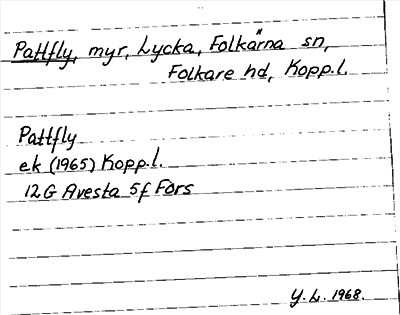 Pattfly, myr, Lycka, Folkärna sn,
Folkare hd, Kopp.l.
Pattfly
ek (1965) Kopp.l.
12G Avesta 5f Fors
Y. L. 1968.